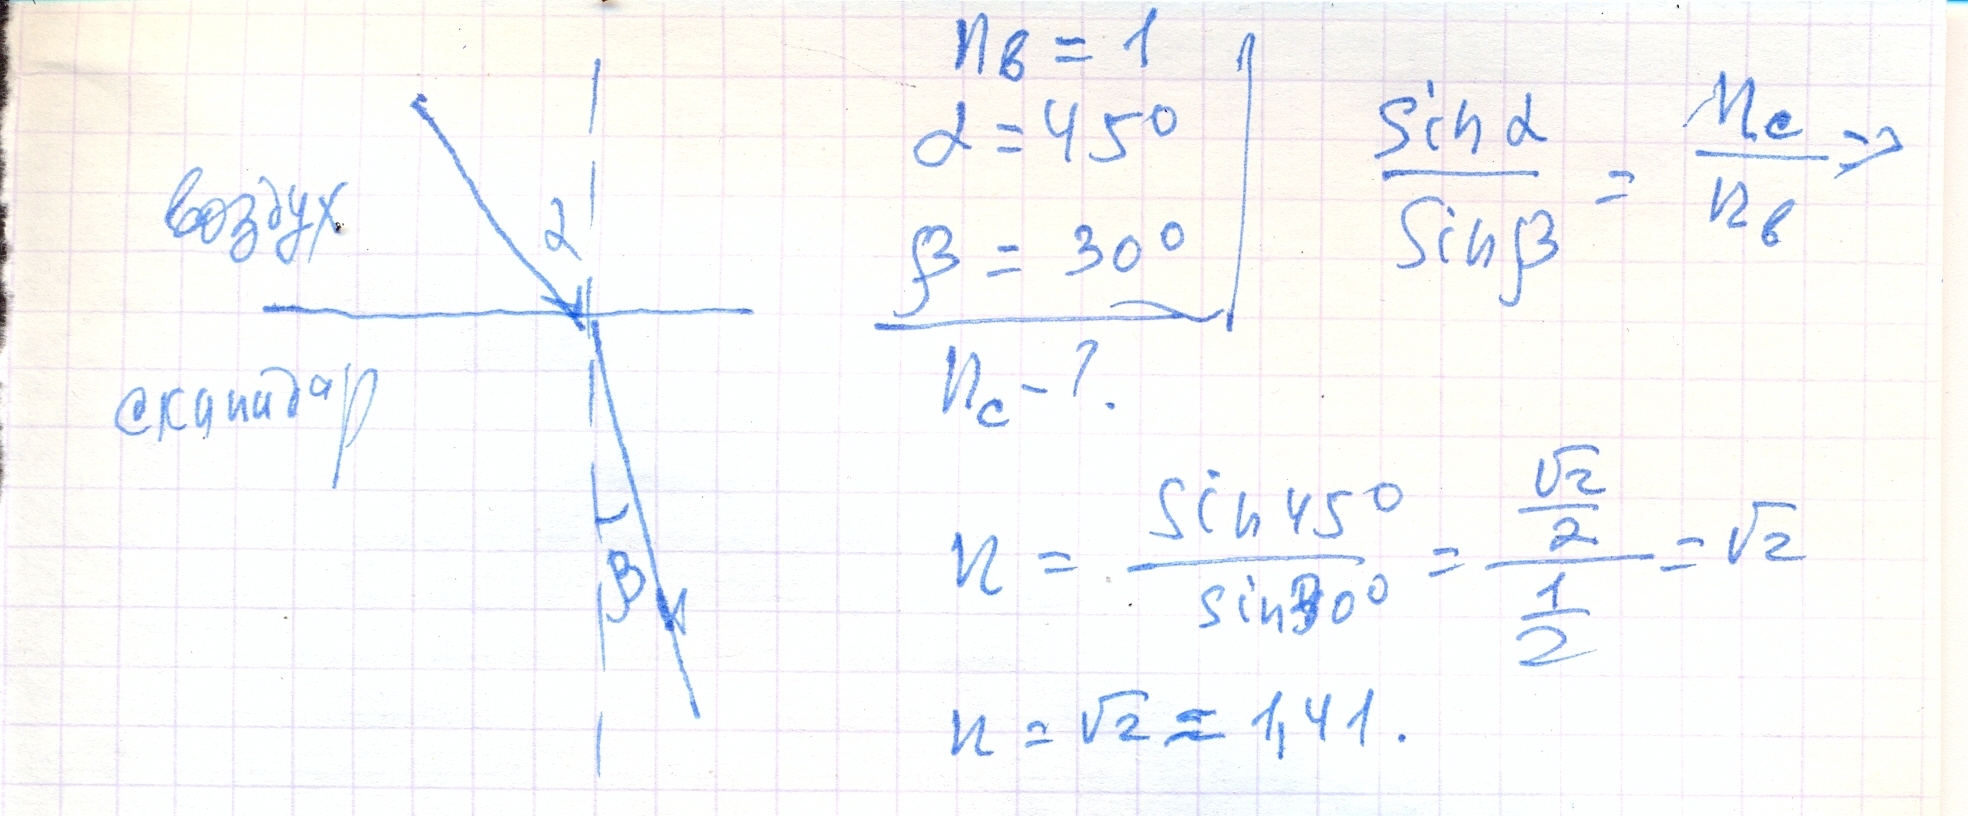 воздух
α
скипидар
β
nв = 1
α = 45°
β = 30°
nс - ?.
sin α / sin β = nс / nв ⇒
n = sin 45° / sin 30° = (√2/2) / (1/2) = √2
n = √2 ≈ 1,41.